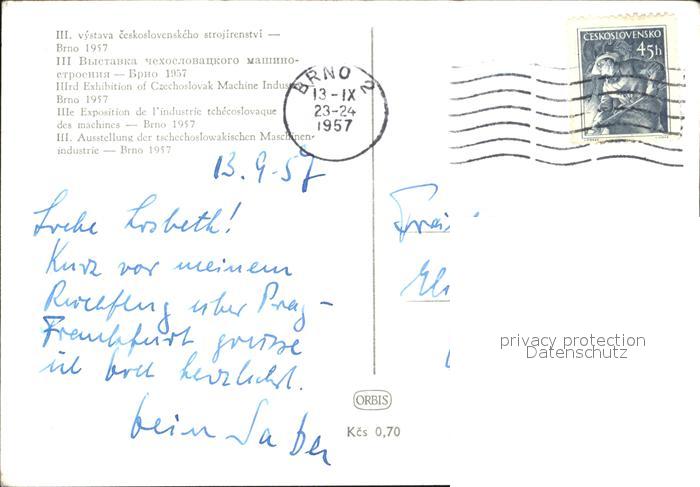 III. výstava československého strojírenství —
Brno 1957
III Выставка чехословацкого машино-
строения — Брно 1957
IIIrd Exhibition of Czechoslovak Machine Indus
Brno 1957
IIIe Exposition de l'industrie tchécoslovaque
des machines — Brno 1957
III. Ausstellung der tschechoslowakischen Maschinen-
industrie — Brno 1957
BRNO 2
13-IX
23-24
1957
ČESKOSLOVENSKO
45h
13.9.57
Liebe Lisbeth!
Kurz vor meinem
Rückflug über Prag-
Frankfurt grüsse
ich herzlichst.
Dein
Fräu
privacy protection
Datenschutz
ORBIS
Kčs 0,70